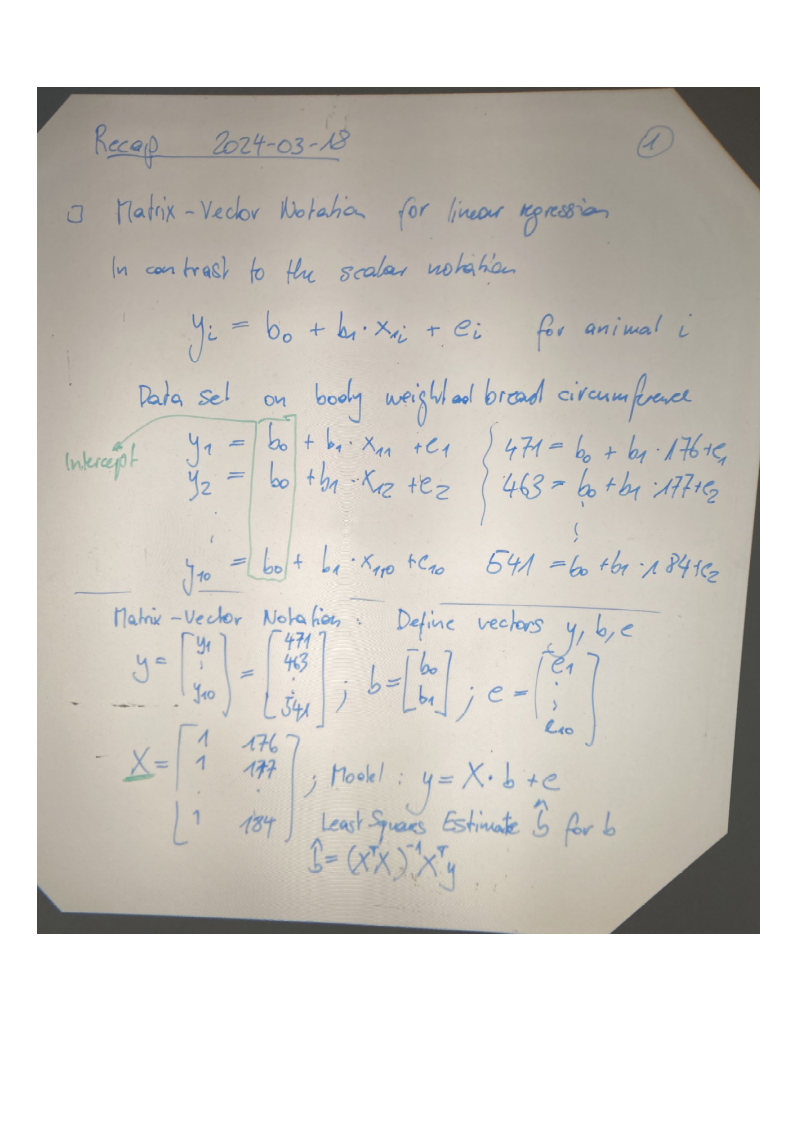 Recap 2024-03-18 1
Matrix-Vector Notation for linear regression
In contrast to the scalar notation
yi = b0 + b1 · x1i + ei for animal i
Data set on body weight and breast circumference
y1 = b0 + b1 · x11 + e1 471 = b0 + b1 · 176 + e1
Intercept
y2 = b0 + b1 · x12 + e2 463 = b0 + b1 · 177 + e2
y10 = b0 + b1 · x110 + e10 541 = b0 + b1 · 184 + e2
Matrix-Vector Notation: Define vectors y, b, e
y = [y1 ⋮ y10] = [471 463 ⋮ 541] ; b = [b0 b1] ; e = [e1 ⋮ e10]
X = [1 176 1 177 ⋮ ⋮ 1 184] ; Model: y = X · b + e
Least Squares Estimate b̂ for b
b̂ = (XᵀX)⁻¹Xᵀy